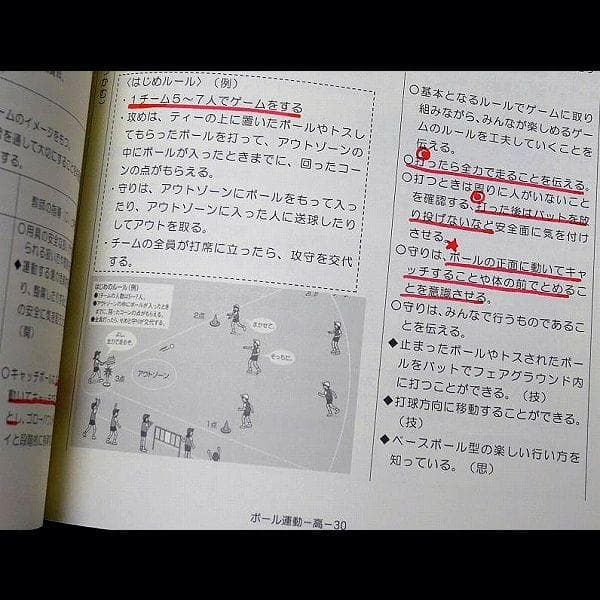 〈はじめルール〉（例）
・1チーム5～7人でゲームをする
・攻めは、ティーの上に置いたボールやトスし
てもらったボールを打って、アウトゾーンの
中にボールが入ったときまでに、回ったコー
ンの点がもらえる。
・守りは、アウトゾーンにボールをもって入っ
たり、アウトゾーンに入った人に送球したり
してアウトを取る。
・チームの全員が打席に立ったら、攻守を交代
する。
はじめのルール（例）
●1チームの人数は5～7人。
●アウトゾーンの中にボールが入ったときま
でに、回ったコーンの点がもらえる。
●全員打ったら、せめと守りが交代する。
よし、
全力で走るぞ。
2点
まかせて。
そっちだ。
アウトゾーン
3点
1点
○基本となるルールでゲームに取り
組みながら、みんなが楽しめるゲー
ムのルールを工夫していくことを
伝える。
○打ったら全力で走ることを伝える。
○打つときは周りに人がいないこと
を確認する、打った後はバットを放
り投げないなど安全面に気を付け
させる。
○守りは、ボールの正面に動いてキャ
ッチすることや体の前でとめるこ
とを意識させる。
○守りは、みんなで行うものであるこ
とを伝える。
◆止まったボールやトスされたボー
ルをバットでフェアグラウンド内
に打つことができる。（技）
◆打球方向に移動することができる。
（技）
◆ベースボール型の楽しい行い方を
知っている。（思）
ームのイメージをもつ。
を通して大切にすること
する。
教師の指導
○用具の安全な
られる
◆運動する
り、整備し
の安全に気を
（関）
○キャッチボール
動いてキャ
とし、ゴロ
イと段階的に
ボール運動－高－30